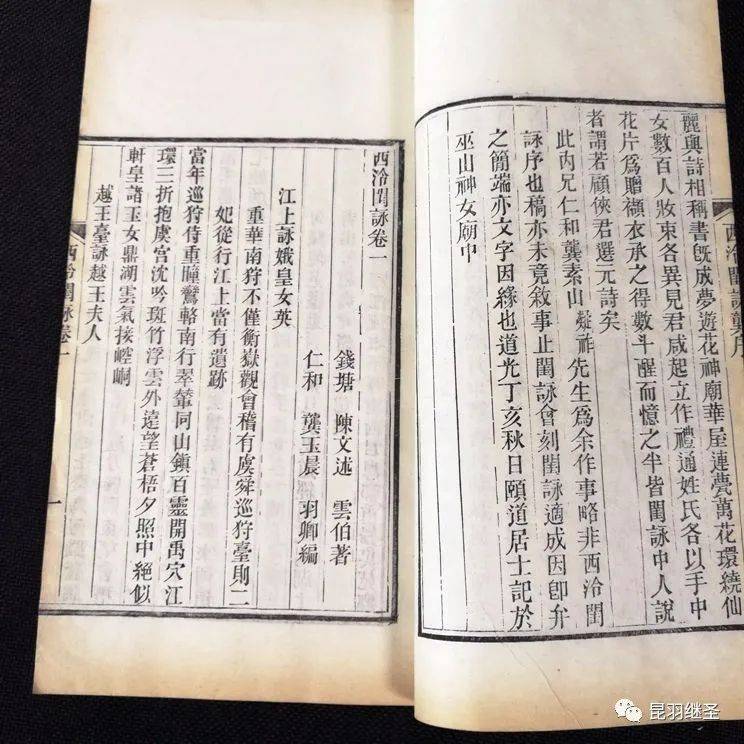 麗與詩相稱書旣成夢遊花神廟華屋連甍萬花環繞仙
女數百人妝束各異見君咸起立作禮通姓氏各以手中
花片爲贈襭衣承之得數斗醒而憶之半皆閨詠中人說
者謂若顧俠君選元詩矣
此內兄仁和龔素山凝祚先生爲余作事略非西泠閨
詠序也稿亦未竟敘事止閨詠會刻閨詠適成因卽弁
之簡端亦文字因緣也道光丁亥秋日頤道居士記於
巫山神女廟中
西泠閨詠龔序
西泠閨詠卷一
錢塘 陳文述 雲伯著
仁和 龔玉晨 羽卿編
江上詠娥皇女英
重華南狩不僅衡嶽觀會稽有虞舜巡狩臺則二
妃從行江上當有遺跡
當年巡狩侍重瞳鸞輅南行翠輦同山鎮百靈開禹穴江
環三折抱虞宮沈吟斑竹浮雲外遠望蒼梧夕照中絕似
軒皇諸玉女鼎湖雲氣接崆峒
越王臺詠越王夫人
西泠閨詠卷一
一
昆羽继圣